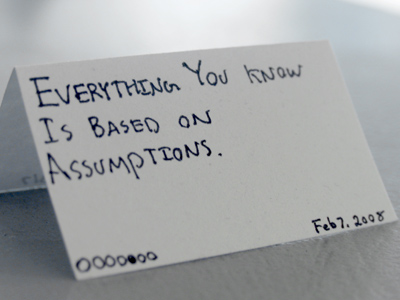 EVERYTHING YOU KNOW
IS BASED ON
ASSUMPTIONS.
Feb 7, 2008